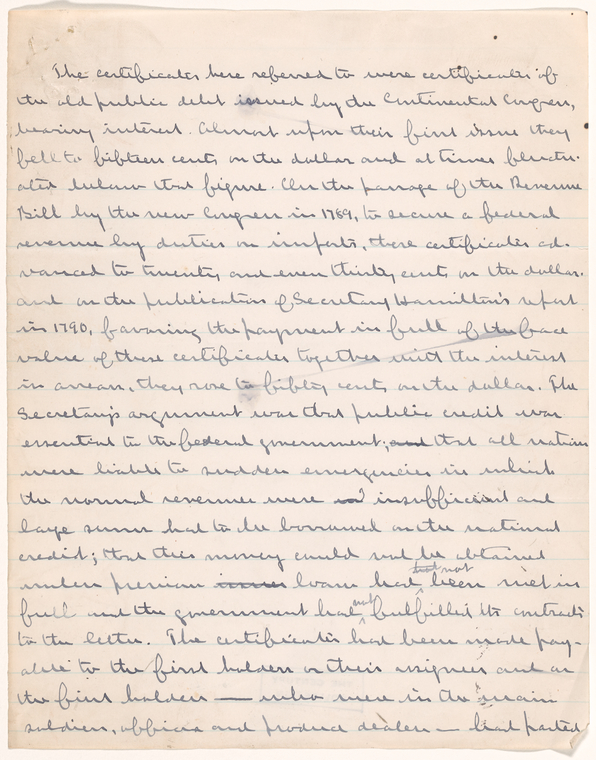 The certificates here referred to were certificates of
the old public debt issued by the Continental Congress,
bearing interest. Almost upon their first issue they
fell to fifteen cents on the dollar and at times fluctu-
ated below that figure. On the passage of the Revenue
Bill by the new Congress in 1789, to secure a federal
revenue by duties on imports, these certificates ad-
vanced to twenty and even thirty cents on the dollar.
and on the publication of Secretary Hamilton's report
in 1790, favoring the payment in full of the face
value of these certificates together with the interest
in arrears, they rose to fifty cents on the dollar. The
Secretary's argument was that public credit was
essential to the federal government; and that all nations
were liable to sudden emergencies in which
the normal revenues were insufficient and
large sums had to be borrowed on the national
credit; that this money could not be obtained
unless previous issues loans had but not been met in
full and the government had not fulfilled its contracts
to the letter. The certificates had been made pay-
able to the first holders or their assignees and as
the first holders — who were in the main
soldiers, officers and produce dealers — had parted